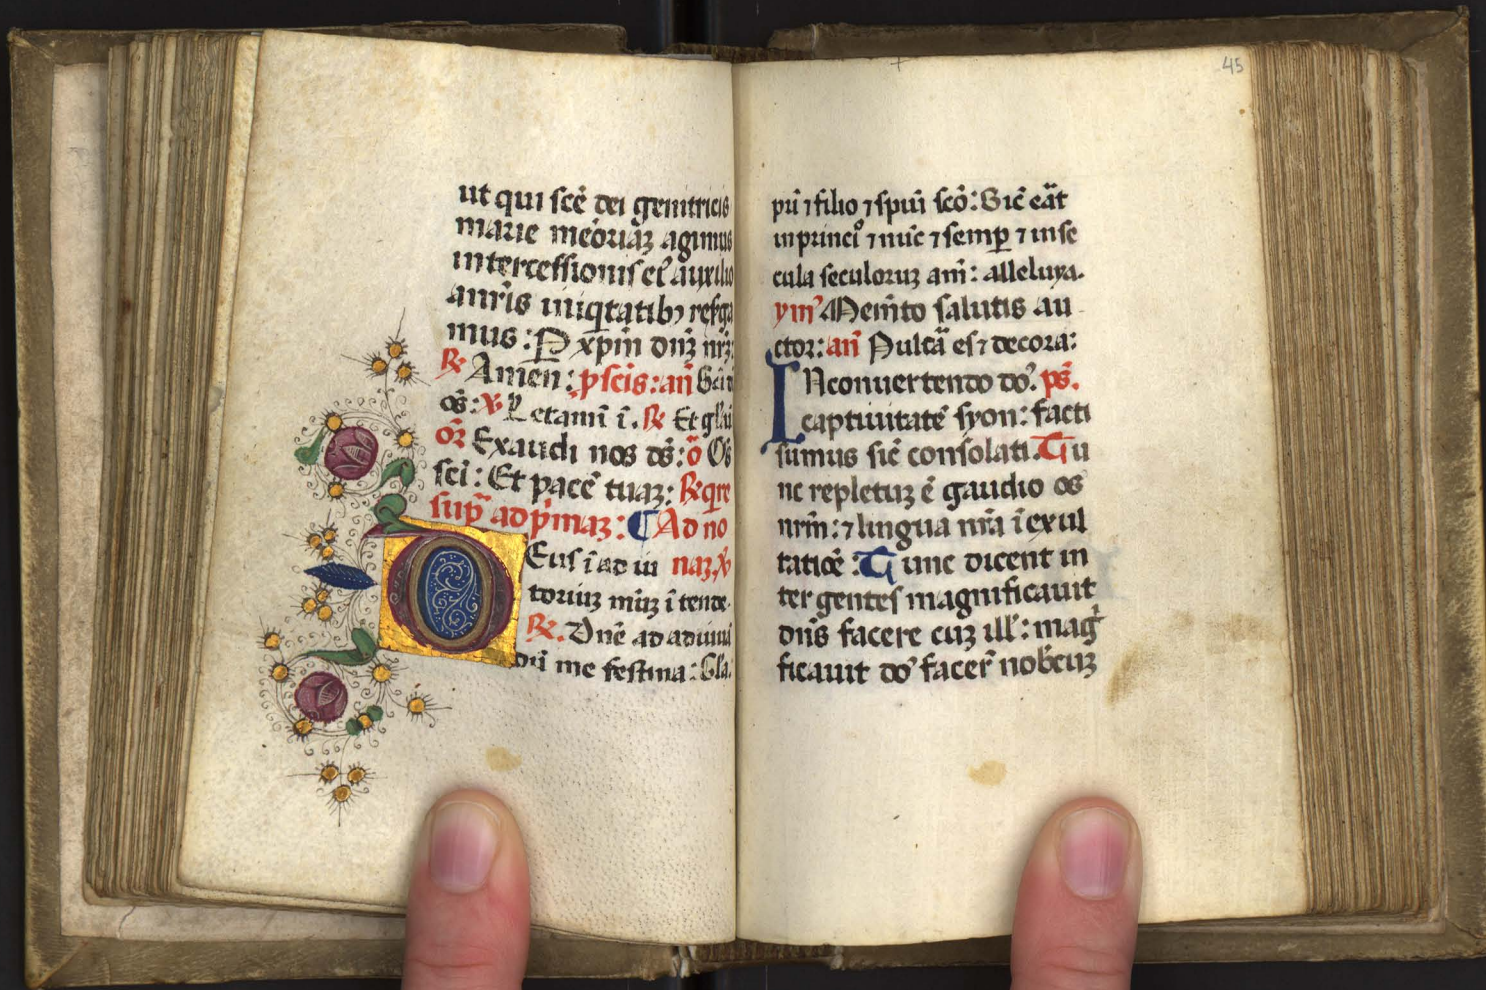 ut qui scē dei genitricis
marie meoriaʒ agimus
intercessionis ei' auxilio
anrīs iniqtatibꝯ resga
mus: P xpm̄ dn̄ʒ nr̄ʒ:
℟ Amen: p̱scīs: an̄
ōs: ℣ Letamī ī. ℟ Et gl̄
or̄ Exaudi nos ds̄: ō Os̄
sci: Et pacē tuaʒ: ℟ qre
sup̄ ad pmaʒ: ¶ Ad no
Eus ī ad iu naʒ ℣
toriuʒ mūʒ ītende.
℟. Dn̄e ad adiuuā
dū me festina: Gla.
45
pr̄i ⁊ filio ⁊ spui scō: Sic̄ eāt
in princiº ⁊ nūc ⁊ semp̱ ⁊ in se
cula seculoruʒ am̄: alleluya.
ymº Memēto salutis au
ctor: an̄ Pulcā es ⁊ decora:
INconuertendo do'. ps̄.
captiuitatē syon: facti
sumus sic̄ consolati. Tu
nc repletuʒ ē gaudio os
nrm̄: ⁊ lingua nrā ī exul
tatiōe: Tunc dicent in
ter gentes magnificauit
dn̄s facere cuʒ ill': magⁱ
ficauit do' facer̄ nobiscuʒ